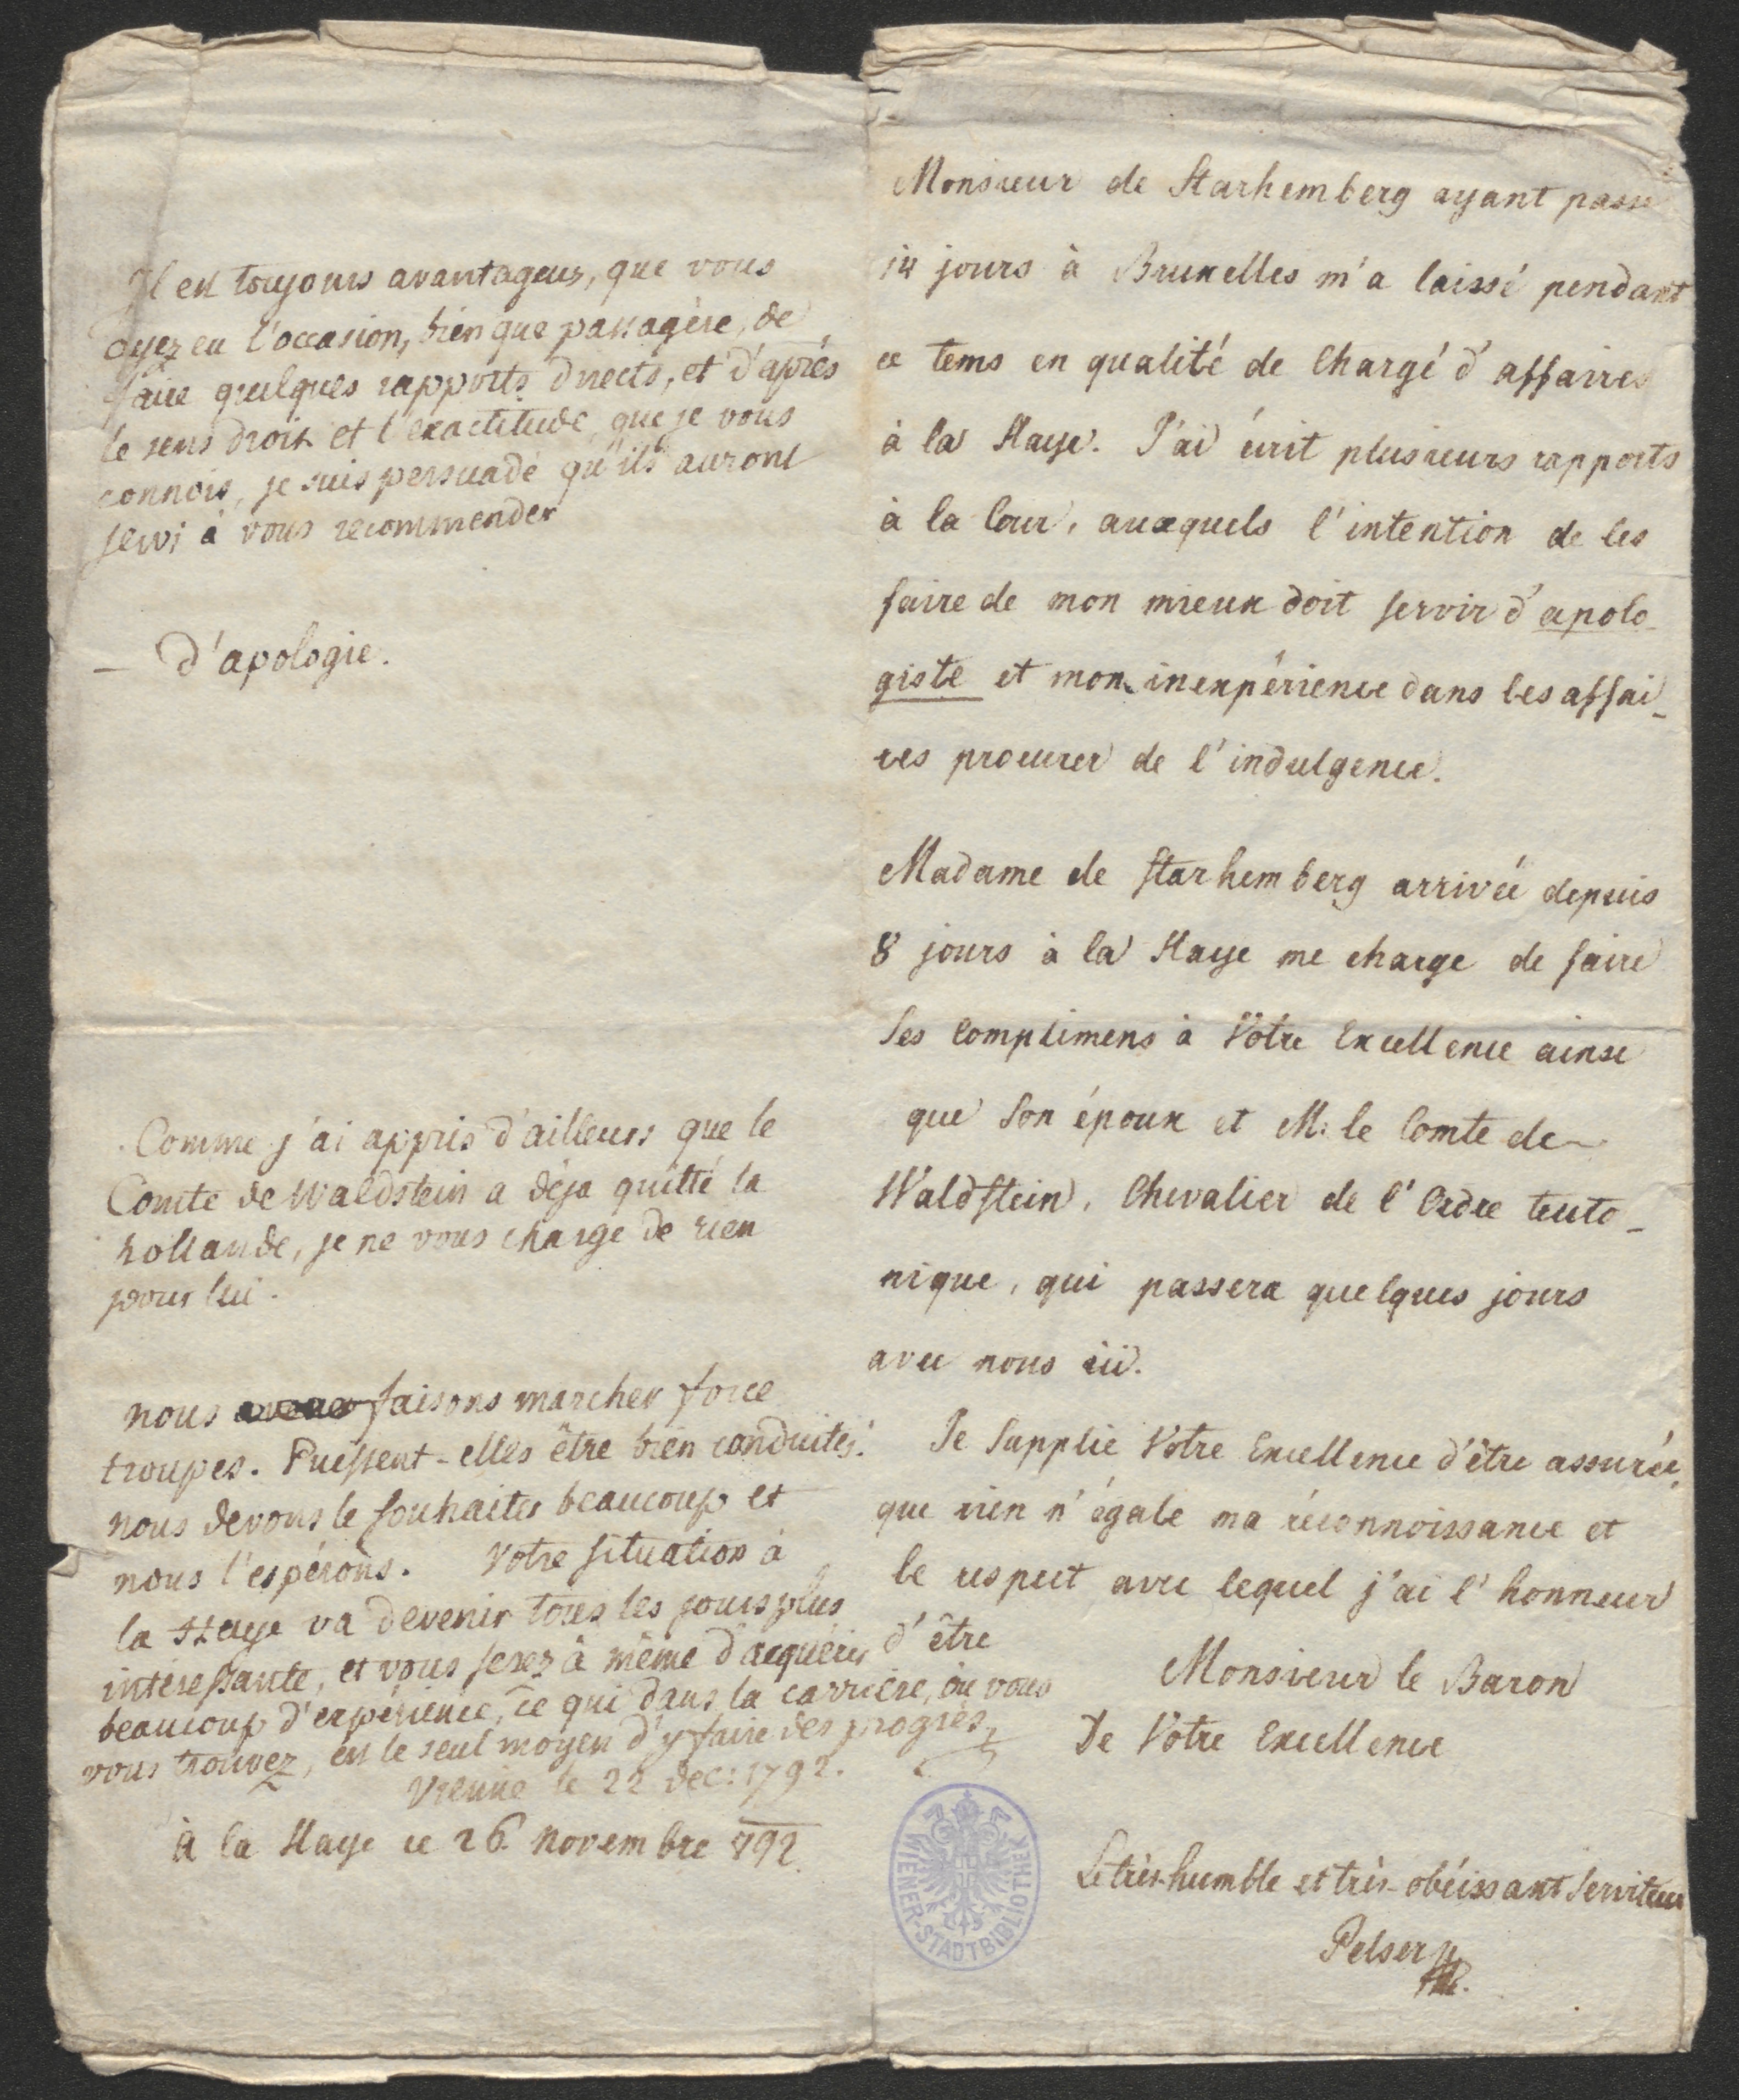 Il est toujours avantageux, que vous
ayez eu l'occasion, bien que passagère, de
faire quelques rapports directs, et d'après
le sens droit et l'exactitude que je vous
connois, je suis persuadé qu'ils auront
servi à vous recommender
— d'apologie.
Comme j'ai appris d'ailleurs que le
Comte de Waldstein a déja quitté la
hollande, je ne vous charge de rien
pour lui.
nous faisons marcher force
troupes. Puissent-elles être bien conduites!
nous devons le souhaiter beaucoup et
nous l'espérons. Votre situation à
la Haye va devenir tous les jours plus
intéressante, et vous serez à même d'acquérir
beaucoup d'expérience, ce qui dans la carrière, où vous
vous trouvez, est le seul moyen d'y faire des progrès
Vienne le 22 dec: 1792.
à la Haye ce 26 novembre 792
Monsieur de Starhemberg ayant passé
14 jours à Bruxelles m'a laissé pendant
ce tems en qualité de Chargé d'affaires
à la Haye. J'ai écrit plusieurs rapports
à la Cour, auxquels l'intention de les
faire de mon mieux doit servir d'apolo-
giste et mon inexpérience dans les affai-
res procurer de l'indulgence.
Madame de Starhemberg arrivée depuis
8 jours à la Haye me charge de faire
Ses Complimens à Vôtre Excellence ainsi
que Son époux et M. le Comte de
Waldstein, Chevalier de l'Ordre teuto-
nique, qui passera quelques jours
avec nous ici.
Je Supplie Vôtre Excellence d'être assurée,
que rien n'égale ma réconnoissance et
le respect avec lequel j'ai l'honneur
d'être
Monsieur le Baron
De Vôtre Excellence
Le très-humble et très-obéissant Serviteur
Pelser
WIENER-STADTBIBLIOTHEK